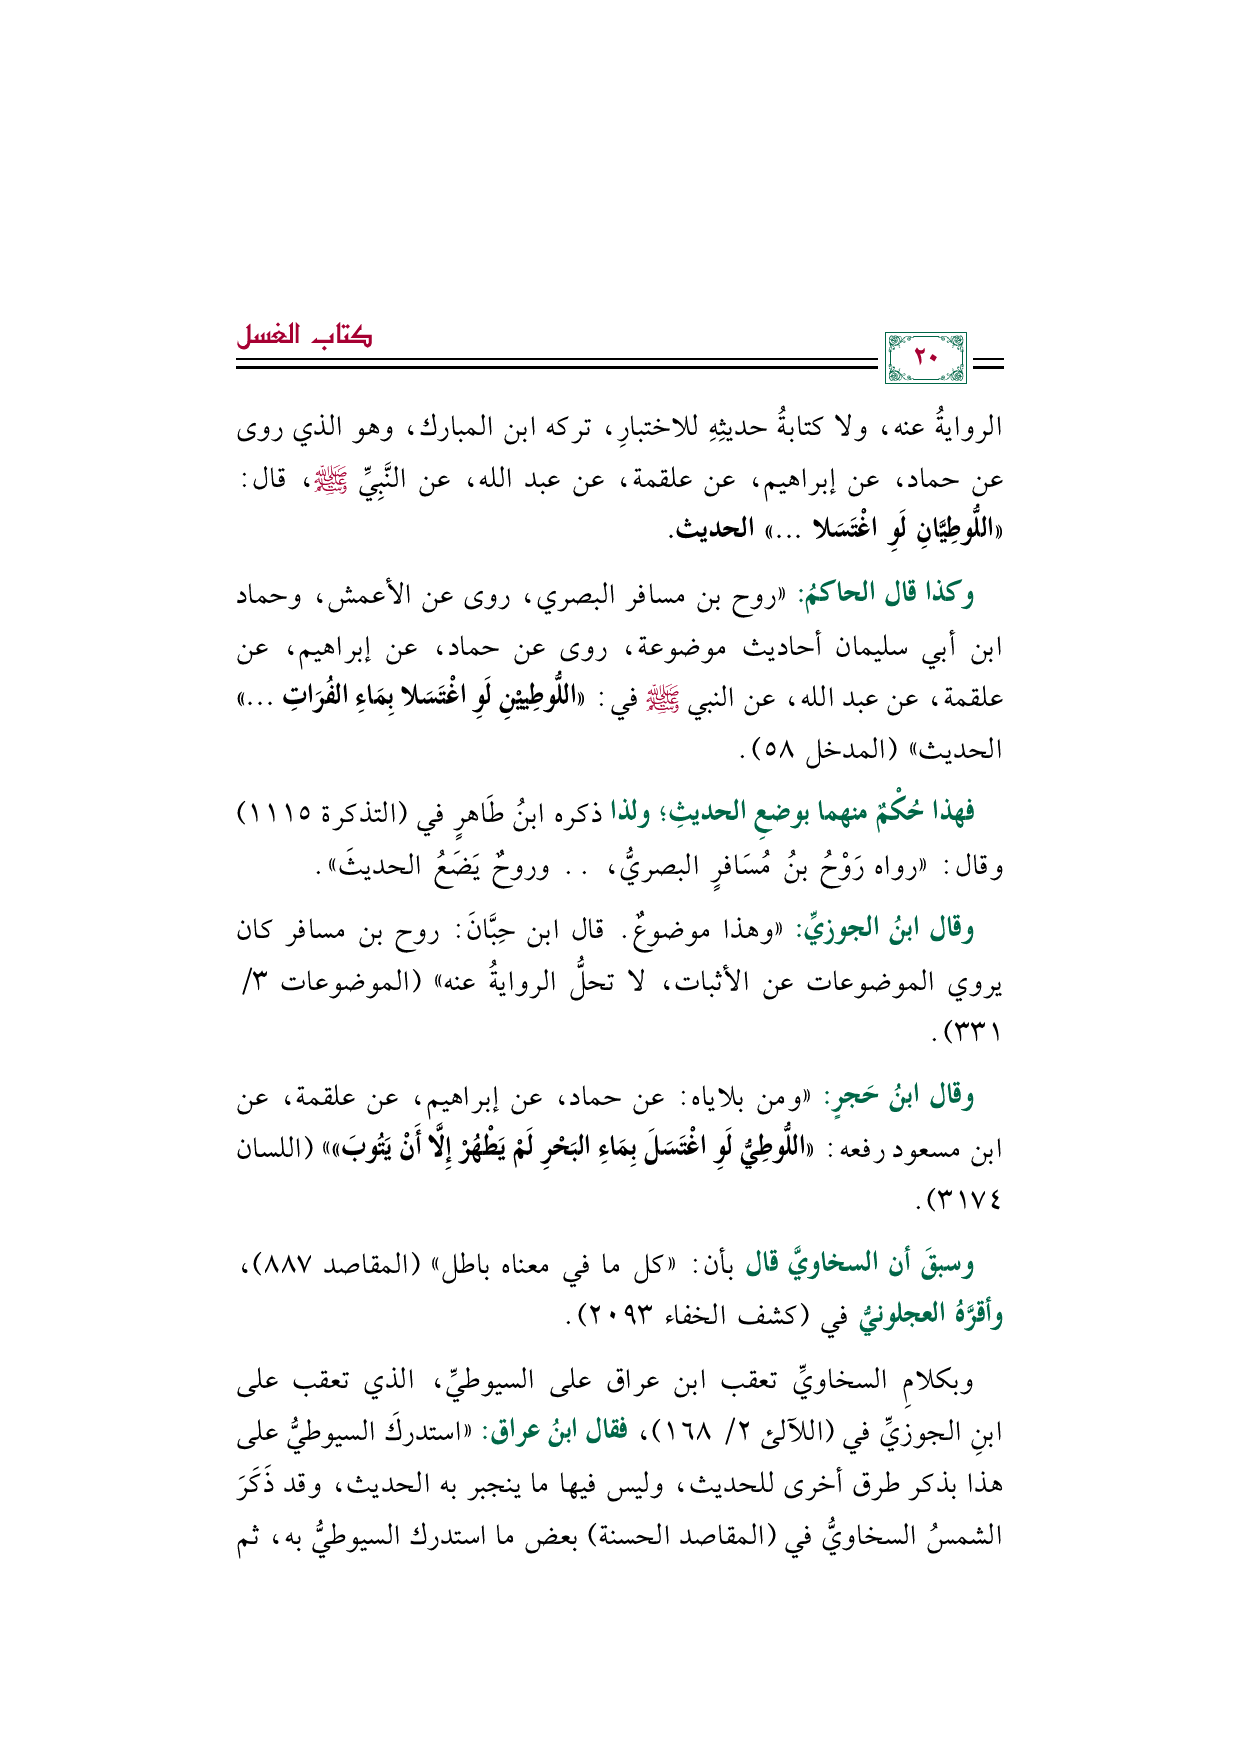 كتاب الغسل
٢٠
الروايةُ عنه، ولا كتابةُ حديثِهِ للاختبارِ، تركه ابن المبارك، وهو الذي روى
عن حماد، عن إبراهيم، عن علقمة، عن عبد الله، عن النَّبِيِّ ﷺ، قال:
«اللُّوطِيَّانِ لَوِ اغْتَسَلا ...» الحديث.
وكذا قال الحاكمُ: «روح بن مسافر البصري، روى عن الأعمش، وحماد
ابن أبي سليمان أحاديث موضوعة، روى عن حماد، عن إبراهيم، عن
علقمة، عن عبد الله، عن النبي ﷺ في: «اللُّوطِييْنِ لَوِ اغْتَسَلا بِمَاءِ الفُرَاتِ ...»
الحديث» (المدخل ٥٨).
فهذا حُكْمٌ منهما بوضعِ الحديثِ؛ ولذا ذكره ابنُ طَاهرٍ في (التذكرة ١١١٥)
وقال: «رواه رَوْحُ بنُ مُسَافرٍ البصريُّ، .. وروحٌ يَضَعُ الحديثَ».
وقال ابنُ الجوزيِّ: «وهذا موضوعٌ. قال ابن حِبَّانَ: روح بن مسافر كان
يروي الموضوعات عن الأثبات، لا تحلُّ الروايةُ عنه» (الموضوعات ٣/
٣٣١).
وقال ابنُ حَجرٍ: «ومن بلاياه: عن حماد، عن إبراهيم، عن علقمة، عن
ابن مسعود رفعه: «اللُّوطِيُّ لَوِ اغْتَسَلَ بِمَاءِ البَحْرِ لَمْ يَطْهُرْ إِلَّا أَنْ يَتُوبَ»» (اللسان
٣١٧٤).
وسبقَ أن السخاويَّ قال بأن: «كل ما في معناه باطل» (المقاصد ٨٨٧)،
وأقرَّهُ العجلونيُّ في (كشف الخفاء ٢٠٩٣).
وبكلامِ السخاويِّ تعقب ابن عراق على السيوطيِّ، الذي تعقب على
ابنِ الجوزيِّ في (اللآلئ ٢/ ١٦٨)، فقال ابنُ عراق: «استدركَ السيوطيُّ على
هذا بذكر طرق أخرى للحديث، وليس فيها ما ينجبر به الحديث، وقد ذَكَرَ
الشمسُ السخاويُّ في (المقاصد الحسنة) بعض ما استدرك السيوطيُّ به، ثم